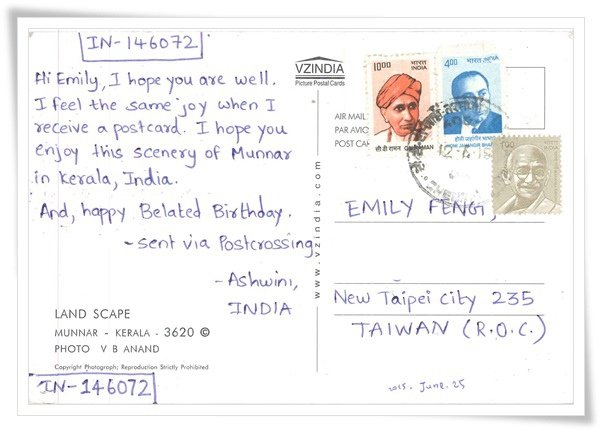 IN-146072
Hi Emily, I hope you are well.
I feel the same joy when I
receive a postcard. I hope you
enjoy this scenery of Munnar
in Kerala, India.
And, happy Belated Birthday.
- sent via Postcrossing
- Ashwini,
INDIA
LAND SCAPE
MUNNAR - KERALA - 3620 ©
PHOTO V B ANAND
Copyright Photograph; Reproduction Strictly Prohibited
IN-146072
www.vzindia.com
VZINDIA
Picture Postal Cards
AIR MAIL
PAR AVIO
POST CA
10.00 भारत
INDIA
सी वी रामन
4.00 भारत
INDIA
EMILY FENG,
New Taipei City 235
TAIWAN (R.O.C.)
2015. June. 25